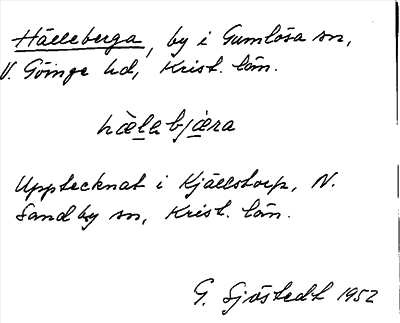 Hälleberga, by i Gumlösa sn,
V. Göinge hd, Krist. län.
hælabjæra
Upptecknat i Kjällstorp, N.
Sandby sn, Krist. län.
G. Sjöstedt 1952